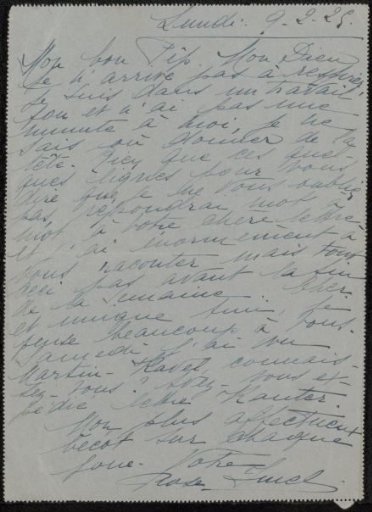 Lundi. 9-2-25.
Mon bon Pip, Mon Dieu
Je n'arrive pas à respirer,
Je suis dans un travail
fou et n'ai pas une
minute à moi, je ne
sais où donner de la
tête. Rien que ces quel-
ques lignes pour vous
dire que je ne vous oublie
pas, répondrai mot à
mot à votre chère lettre
et j'ai énormément à
vous raconter mais tout
ceci pas avant la fin
de la semaine. Cher
et unique ami, je
pense beaucoup à vous.
Samedi j'ai vu
Martin - connais-
sez-vous? Avez-vous ex-
pédié lettre
Mon plus affectueux
bécot sur chaque
joue. Votre
Rose